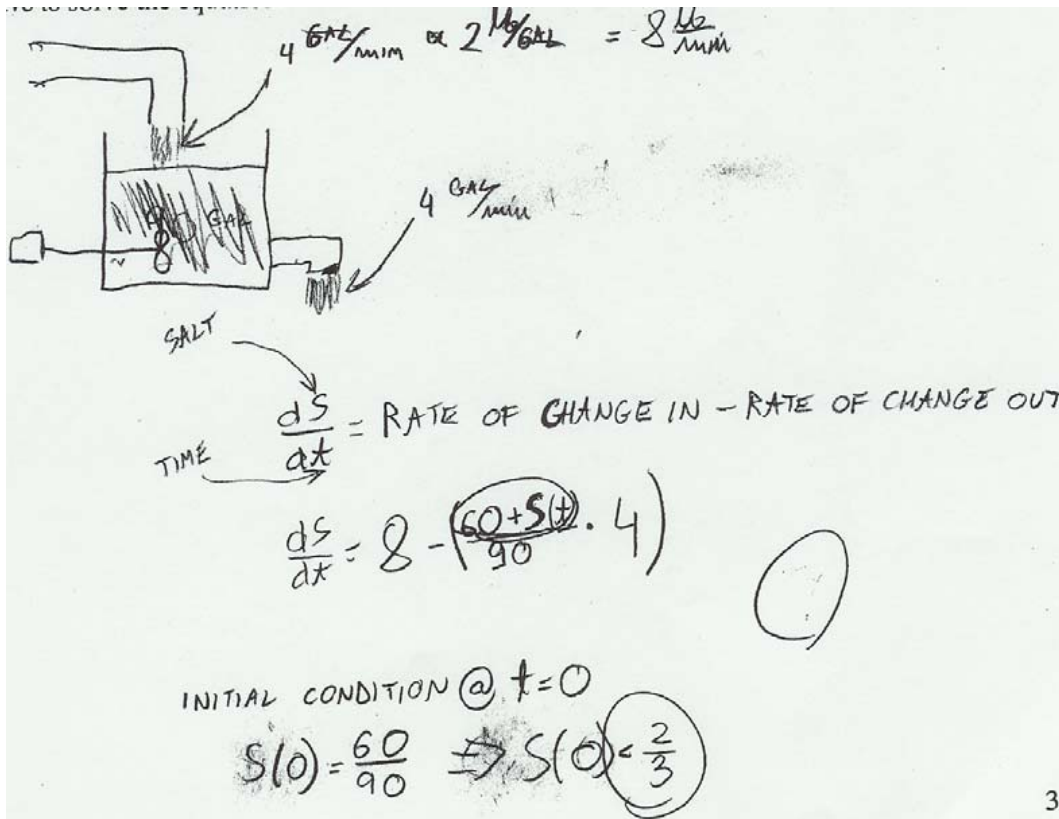 to solve the
4 GAL/min × 2 lb/GAL = 8 lb/min
90 GAL
4 GAL/min
SALT
dS/dt = RATE OF CHANGE IN - RATE OF CHANGE OUT
TIME
dS/dt = 8 - (60+S(t)/90 · 4)
INITIAL CONDITION @ t=0
S(0) = 60/90 => S(0) = 2/3
3